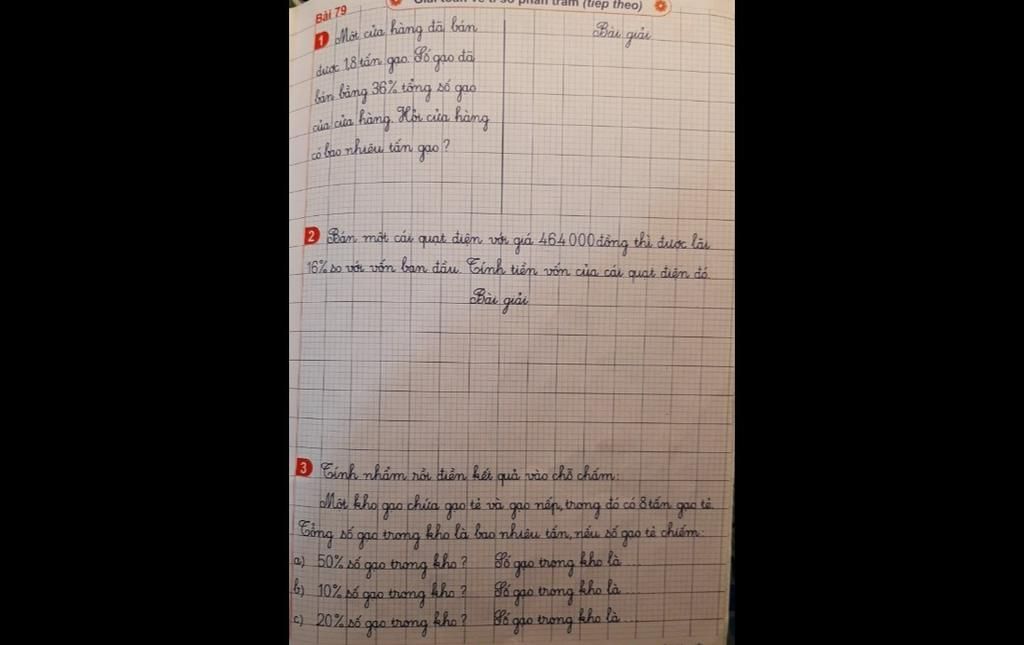 Bài 79
Giải toán về tỉ số phần trăm (tiếp theo)
1 Một cửa hàng đã bán
được 1,8 tấn gạo. Số gạo đã
bán bằng 36% tổng số gạo
của cửa hàng. Hỏi cửa hàng
có bao nhiêu tấn gạo?
Bài giải
2 Bán một cái quạt điện với giá 464000 đồng thì được lãi
16% so với vốn ban đầu. Tính tiền vốn của cái quạt điện đó.
Bài giải
3 Tính nhẩm rồi điền kết quả vào chỗ chấm:
Một kho gạo chứa gạo tẻ và gạo nếp, trong đó có 8 tấn gạo tẻ.
Tổng số gạo trong kho là bao nhiêu tấn, nếu số gạo tẻ chiếm:
a) 50% số gạo trong kho? Số gạo trong kho là ...
b) 10% số gạo trong kho? Số gạo trong kho là ...
c) 20% số gạo trong kho? Số gạo trong kho là ...